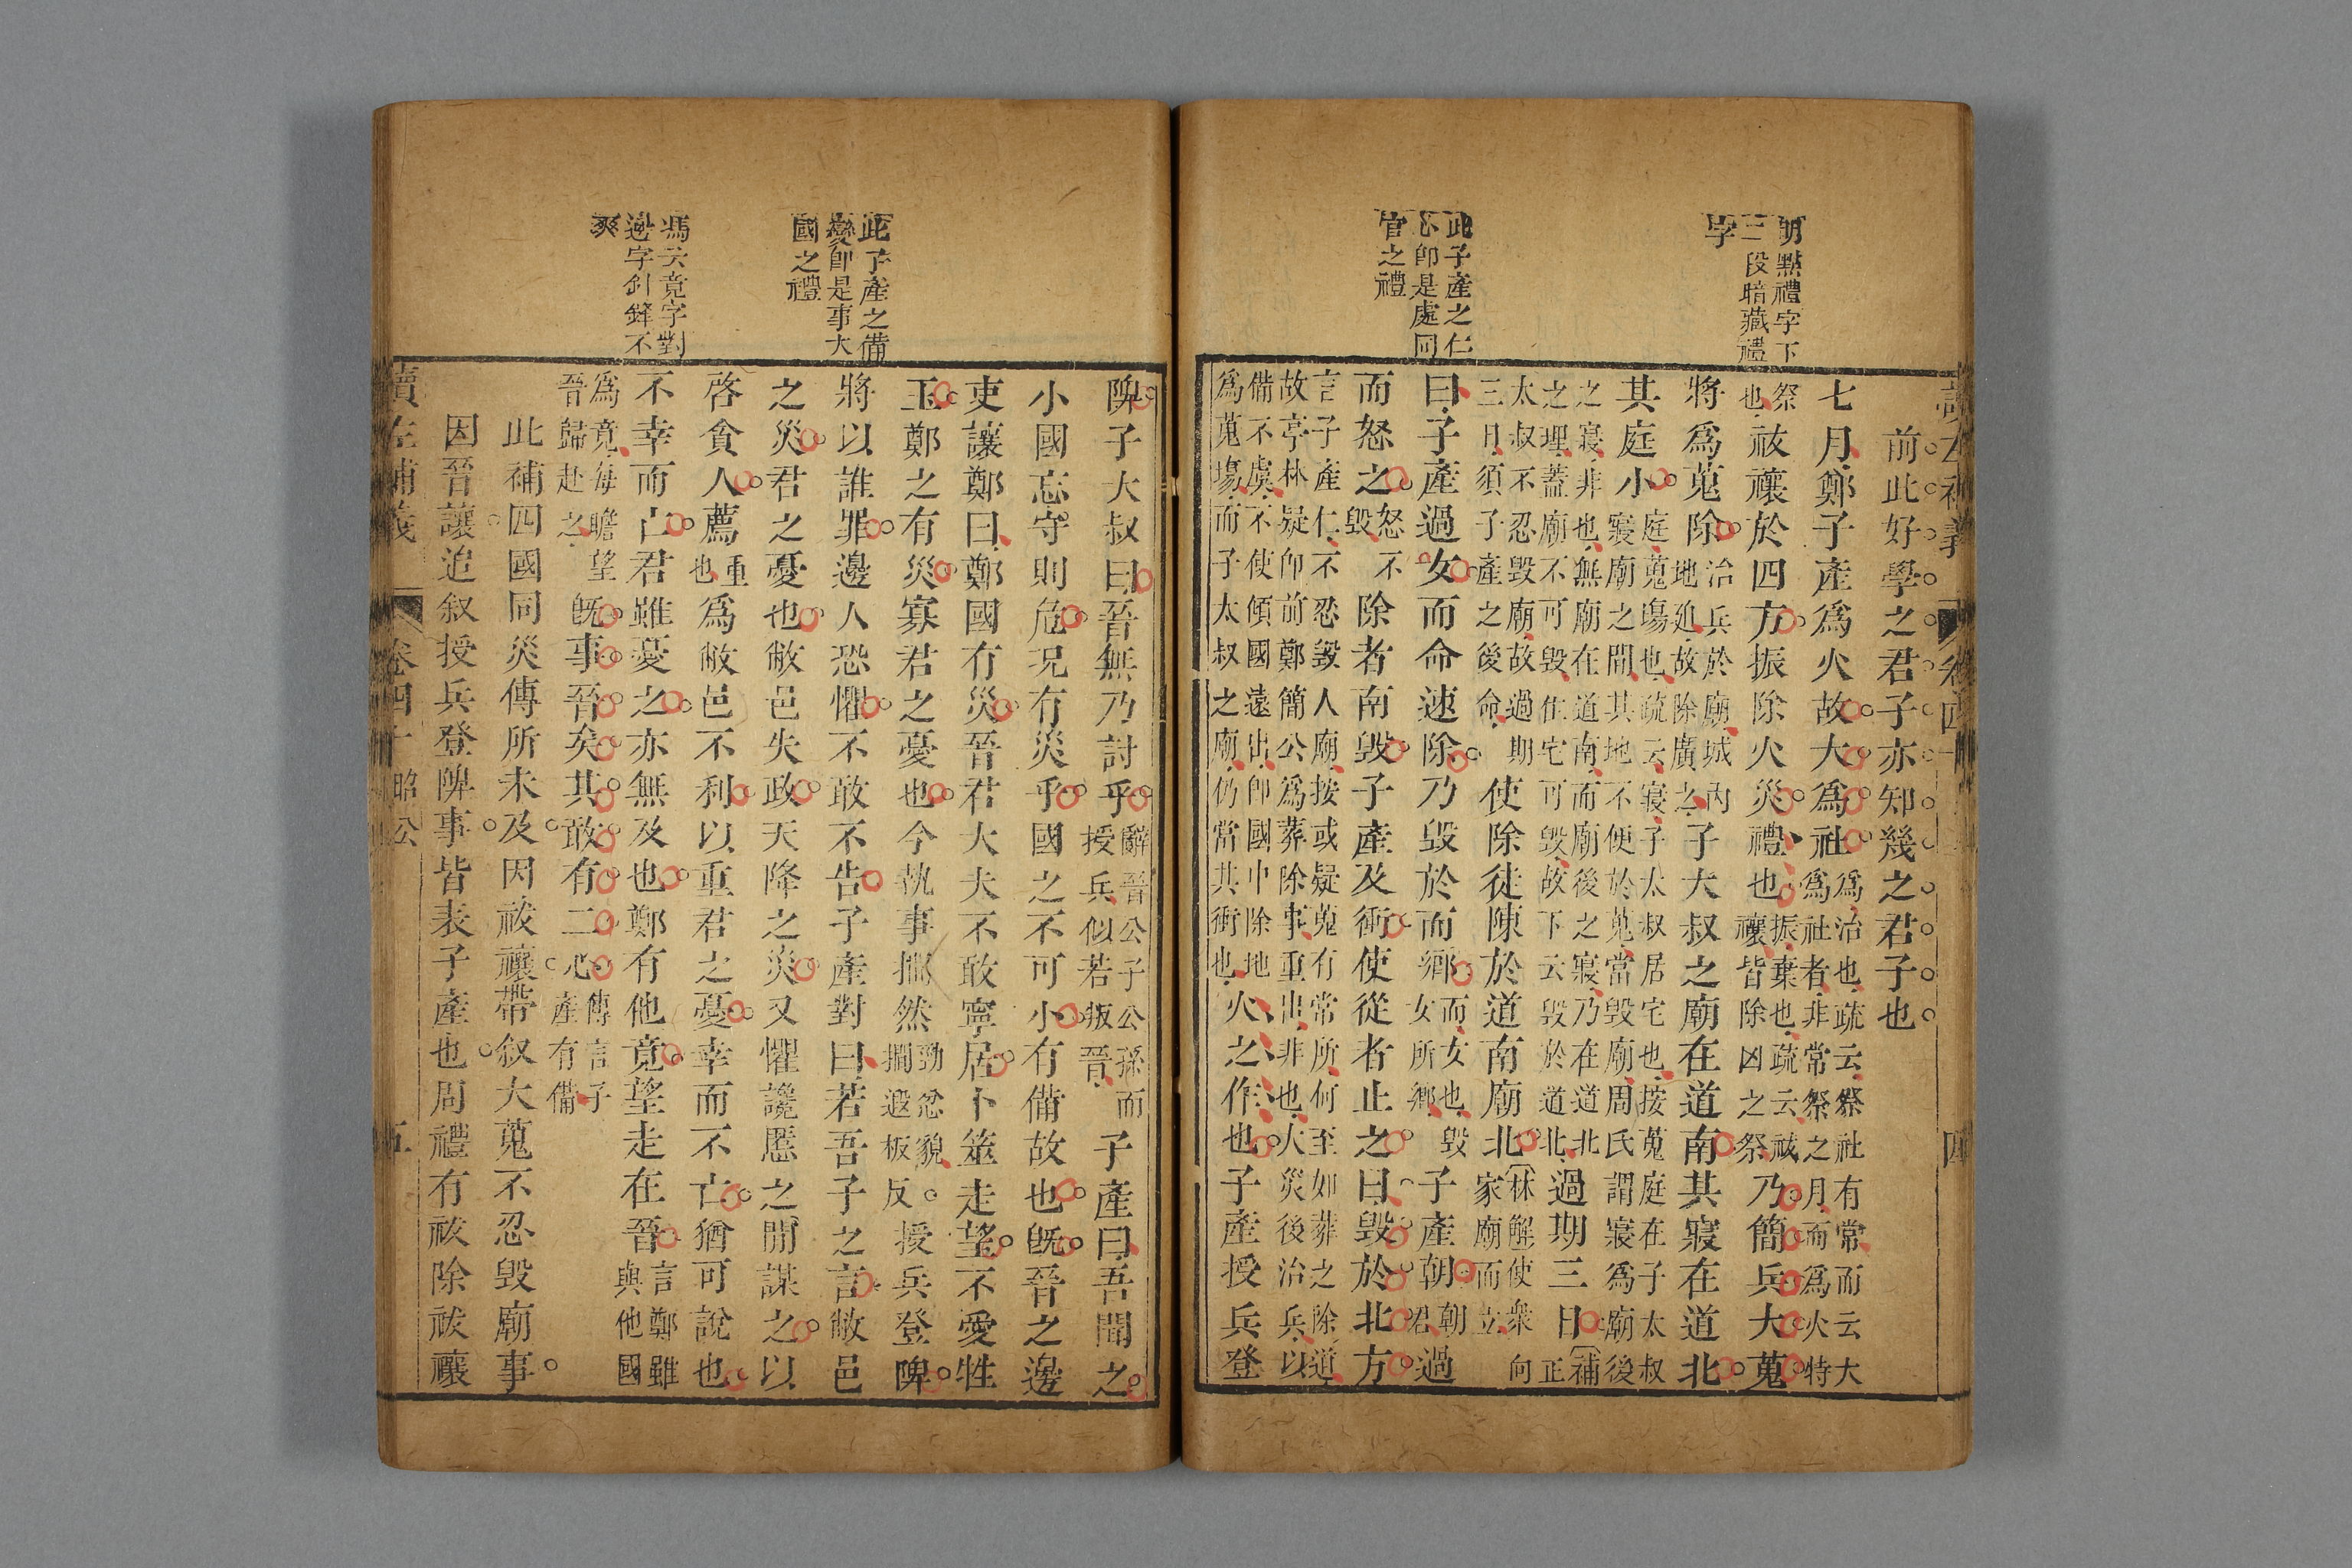 明點禮字下
三段暗藏禮
字
此子產之仁
心即是處同
官之禮
前此好學之君子亦知幾之君子也
七月鄭子產爲火故大爲社爲治也疏云祭社有常而云大
爲社者非常祭之月而爲火特
祭
也祓禳於四方振除火災禮也振棄也疏云祓
禳皆除凶之祭乃簡兵大蒐
將爲蒐除治兵於廟城內
地迫故除廣之子大叔之廟在道南其寢在道北
其庭小庭蒐場也疏云寢子太叔居宅也按蒐庭在子太叔
寢廟之間其地不便於蒐當毀廟周氏謂寢爲廟後
之寢非也無廟在道南而廟後之寢乃在道北
之理蓋廟不可毀住宅可毀故下云毀於道北過期三日補正
太叔不忍毀廟故過期
三日須子產之後命使除徒陳於道南廟北林解使衆向
家廟而立
曰子產過女而命速除乃毀於而鄉而女也毀
女所鄉子產朝朝君過
而怒之怒不
毀除者南毀子產及衝使從者止之曰毀於北方
言子產仁不忍毀人廟按或疑蒐有常所何至如葬之除道
故亭林疑卽前鄭簡公爲葬除事重出非也大災後治兵以
備不虞不使傾國遠出卽國中除地
爲蒐場而子太叔之廟仍當其衝也火之作也子產授兵登
讀左補義
卷四十
四
此子產之備
變即是事大
國之禮
馮云竟字對
邊字針鋒不
爽
陴子大叔曰晉無乃討乎辭晉公子公孫而
授兵似若叛晉子產曰吾聞之
小國忘守則危况有災乎國之不可小有備故也既晉之邊
吏讓鄭曰鄭國有災晉君大夫不敢寧居卜筮走望不愛牲
玉鄭之有災寡君之憂也今執事撊然勁忿貌
撊遐板反授兵登陴
將以誰罪邊人恐懼不敢不告子產對曰若吾子之言敝邑
之災君之憂也敝邑失政天降之災又懼讒慝之間謀之以
啓貪人薦重
也爲敝邑不利以重君之憂幸而不亡猶可說也
不幸而亡君雖憂之亦無及也鄭有他竟望走在晉言鄭雖
與他國
爲竟每瞻望
晉歸赴之既事晉矣其敢有二心傳言子
產有備
此補四國同災傳所未及因祓禳帶叙大蒐不忍毀廟事
因晉讓追叙授兵登陴事皆表子產也周禮有祓除祓禳
讀左補義
卷四十
昭公
五